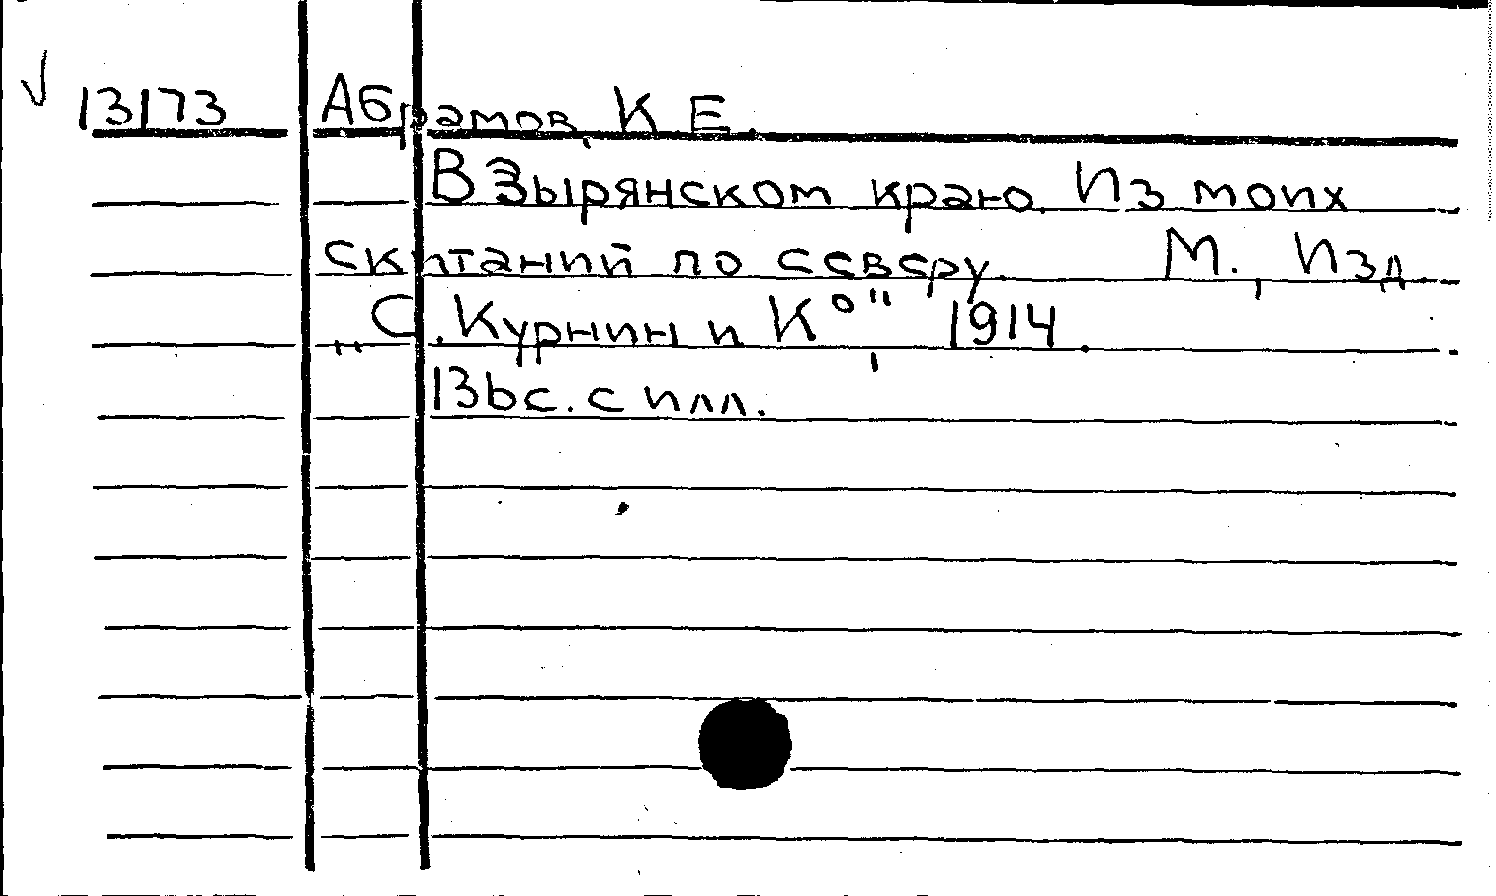 13173 Абрамов, К Е.
В Зырянском краю. Из моих
скитаний по северу. М., Изд.
„С. Курнин и К°", 1914.
136с. с илл.